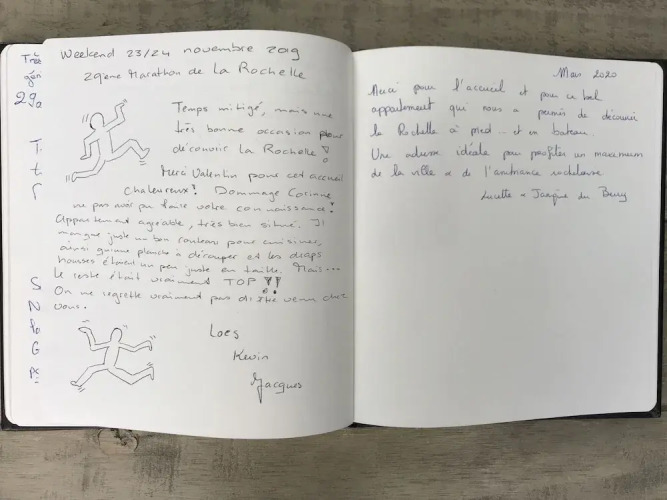 Weekend 23/24 novembre 2019
29ème Marathon de La Rochelle
Temps mitigé, mais une
très bonne occasion pour
découvrir La Rochelle !
Merci Valentin pour cet accueil
chaleureux! Dommage Corinne
ne pas avoir pu faire votre connaissance!
Appartement agréable, très bien situé. Il
manque juste un bon couteau pour cuisiner,
ainsi qu'une planche à découper et les draps
housses étaient un peu juste en taille. Mais...
le reste était vraiment TOP !!
On ne regrette vraiment pas d'être venu chez
vous.
Loes
Kevin
Jacques
Mars 2020
Merci pour l'accueil et pour ce bel
appartement qui nous a permis de découvrir
la Rochelle à pied.. et en bateau.
Une adresse idéale pour profiter un maximum
de la ville et de l'ambiance rochelaise